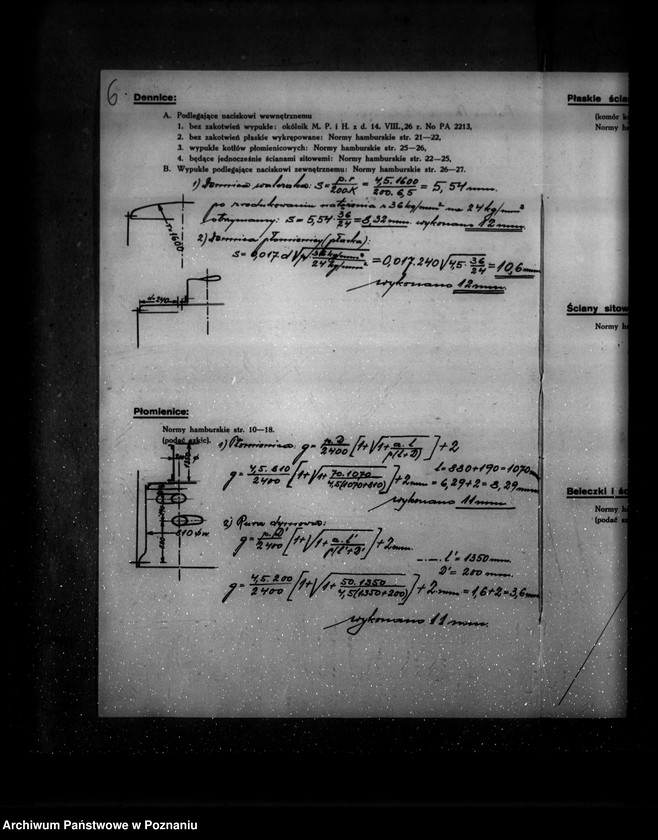 6
Dennice:
A. Podlegające naciskowi wewnętrznemu
1. bez zakotwień wypukłe: okólnik M. P. i H. z d. 14. VIII. 26 r. No PA 2213,
2. bez zakotwień płaskie wykrępowane: Normy hamburskie str. 21—22,
3. wypukłe kotłów płomienicowych: Normy hamburskie str. 25—26,
4. będące jednocześnie ścianami sitowemi: Normy hamburskie str. 22—25,
B. Wypukłe podlegające naciskowi zewnętrznemu: Normy hamburskie str. 26—27.
1) Dennica walczaka: s = p.r / 200.K = 4,5.1600 / 200.6,5 = 5,54 mm.
po zredukowaniu natężenia z 36 kg/mm² na 24 kg/mm²
otrzymamy: s = 5,54 . 36/24 = 8,32 mm. wykonano 12 mm.
r=1600
2) Dennica płomienicy (płaska):
s = 0,017.d √ = 0,017.240 √4,5 . 36/24 = 10,6 mm
wykonano 12 mm.
d=240
Płomienice:
Normy hamburskie str. 10—18.
(podać szkic).
1) Płomienica: g = p.D / 2400 [1+√1+ a.l / p(l+D)] + 2
l = 880+190 = 1070 mm
g = 4,5.810 / 2400 [1+√1+ 70.1070 / 4,5(1070+810)] + 2 mm = 6,29+2 = 8,29 mm
wykonano 11 mm.
810
2) Rura dymowa:
g = p.D' / 2400 [1+√1+ a.l' / p(l'+D')] + 2 mm.
l' = 1350 mm.
D' = 200 mm.
g = 4,5.200 / 2400 [1+√1+ 50.1350 / 4,5(1350+200)] + 2 mm = 1,6+2 = 3,6 mm
wykonano 11 mm.
Płaskie ścia
(komór k
Normy h
Ściany sitow
Normy ha
Beleczki i
Normy h
(podać sz
Archiwum Państwowe w Poznaniu